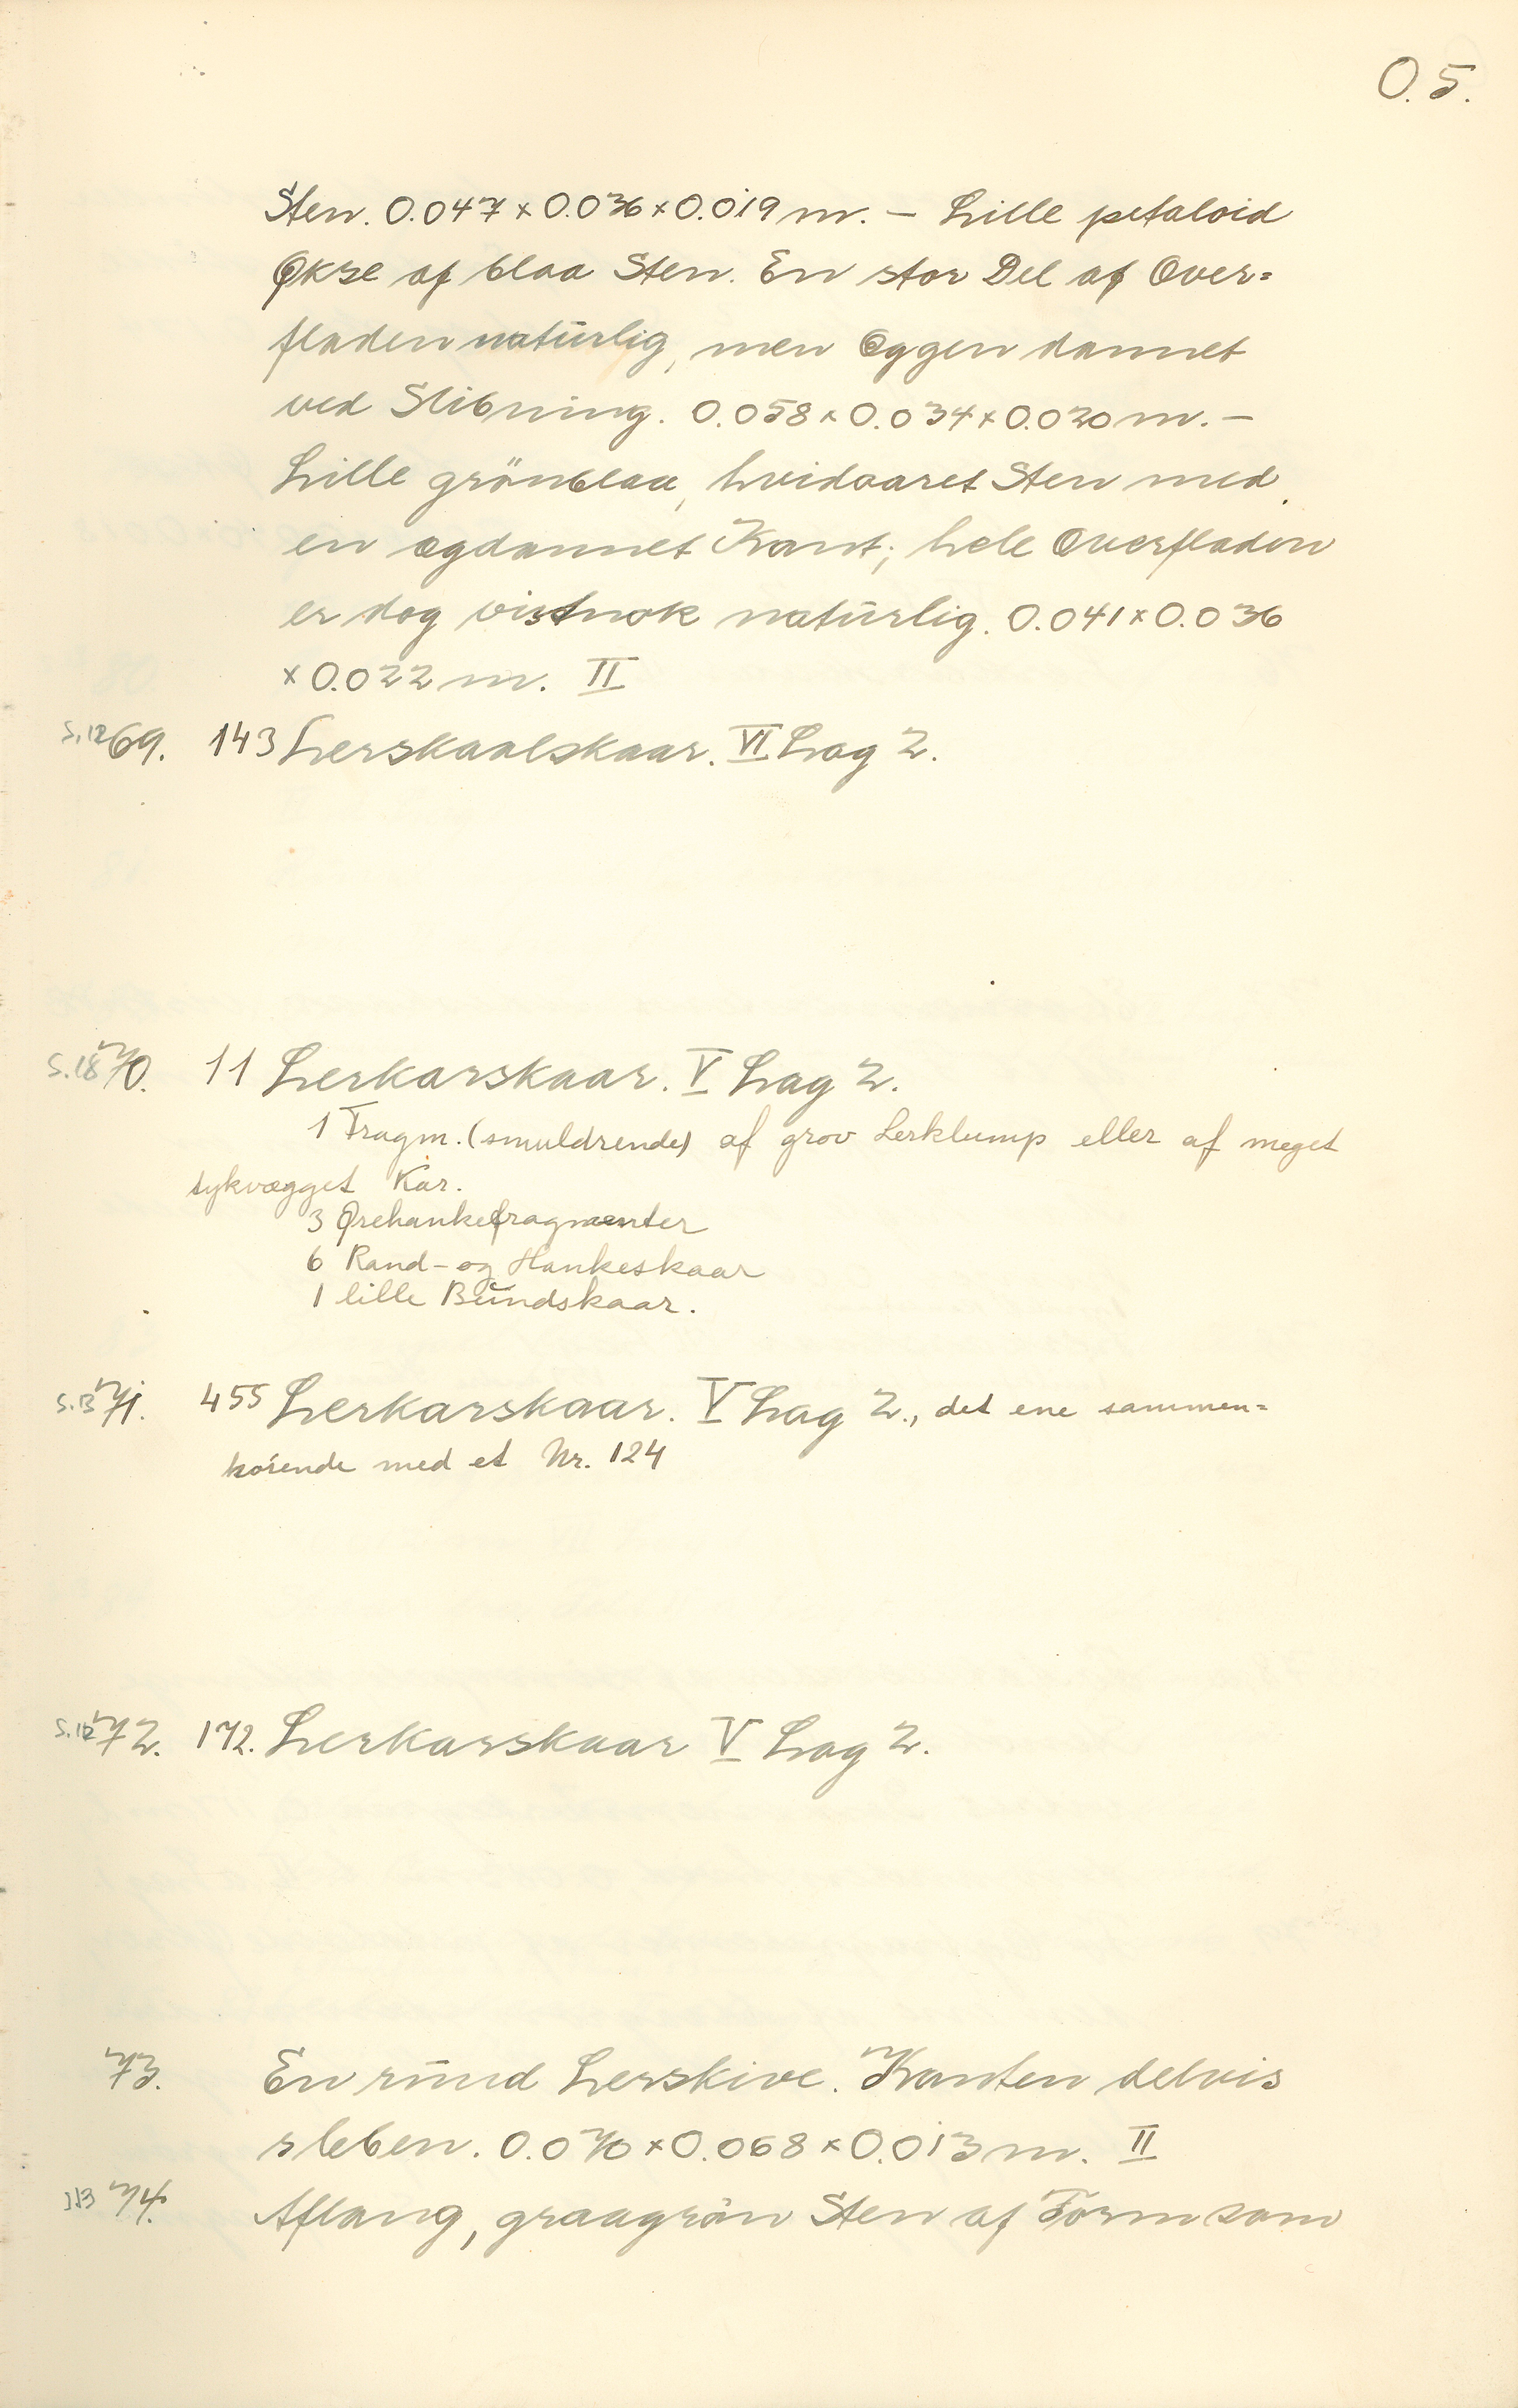 O. 5.
Sten. 0.047 x 0.036 x 0.019 m. — Lille petaloid
Økse af blaa Sten. En stor Del af Over=
fladen natürlig, men Eggen dannet
ved Slibning. 0.058 x 0.034 x 0.020 m. —
Lille grönblaa, hvidaaret Sten med
en ægdannet Kant; hele Overfladen
er dog vistnok natürlig. 0.041 x 0.036
x 0.022 m. II
S.12 69. 143 Lerskaalskaar. VI Lag 2.
S.18 70. 11 Lerkarskaar. V Lag 2.
1 Fragm. (smuldrende) af grov Lerklump eller af meget
tykvægget Kar.
3 Ørehankefragmenter
6 Rand- og Hankeskaar
1 lille Bŭndskaar.
S.13 71. 455 Lerkarskaar. V Lag 2., det ene sammen=
hörende med et Nr. 124
S.12 72. 172. Lerkarskaar V Lag 2.
73. En ründ Lerskive. Kanten delvis
sleben. 0.070 x 0.068 x 0.013 m. II
113 74. Aflang, graagrön Sten af Form som